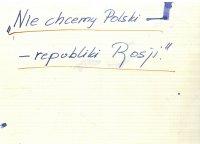 „Nie chcemy Polski —
– republiki Rosji."